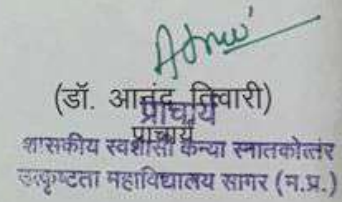 (डॉ. आनंद तिवारी)
प्राचार्य
प्राचार्य
शासकीय स्वशासी कन्या स्नातकोत्तर
उत्कृष्टता महाविद्यालय सागर (म.प्र.)